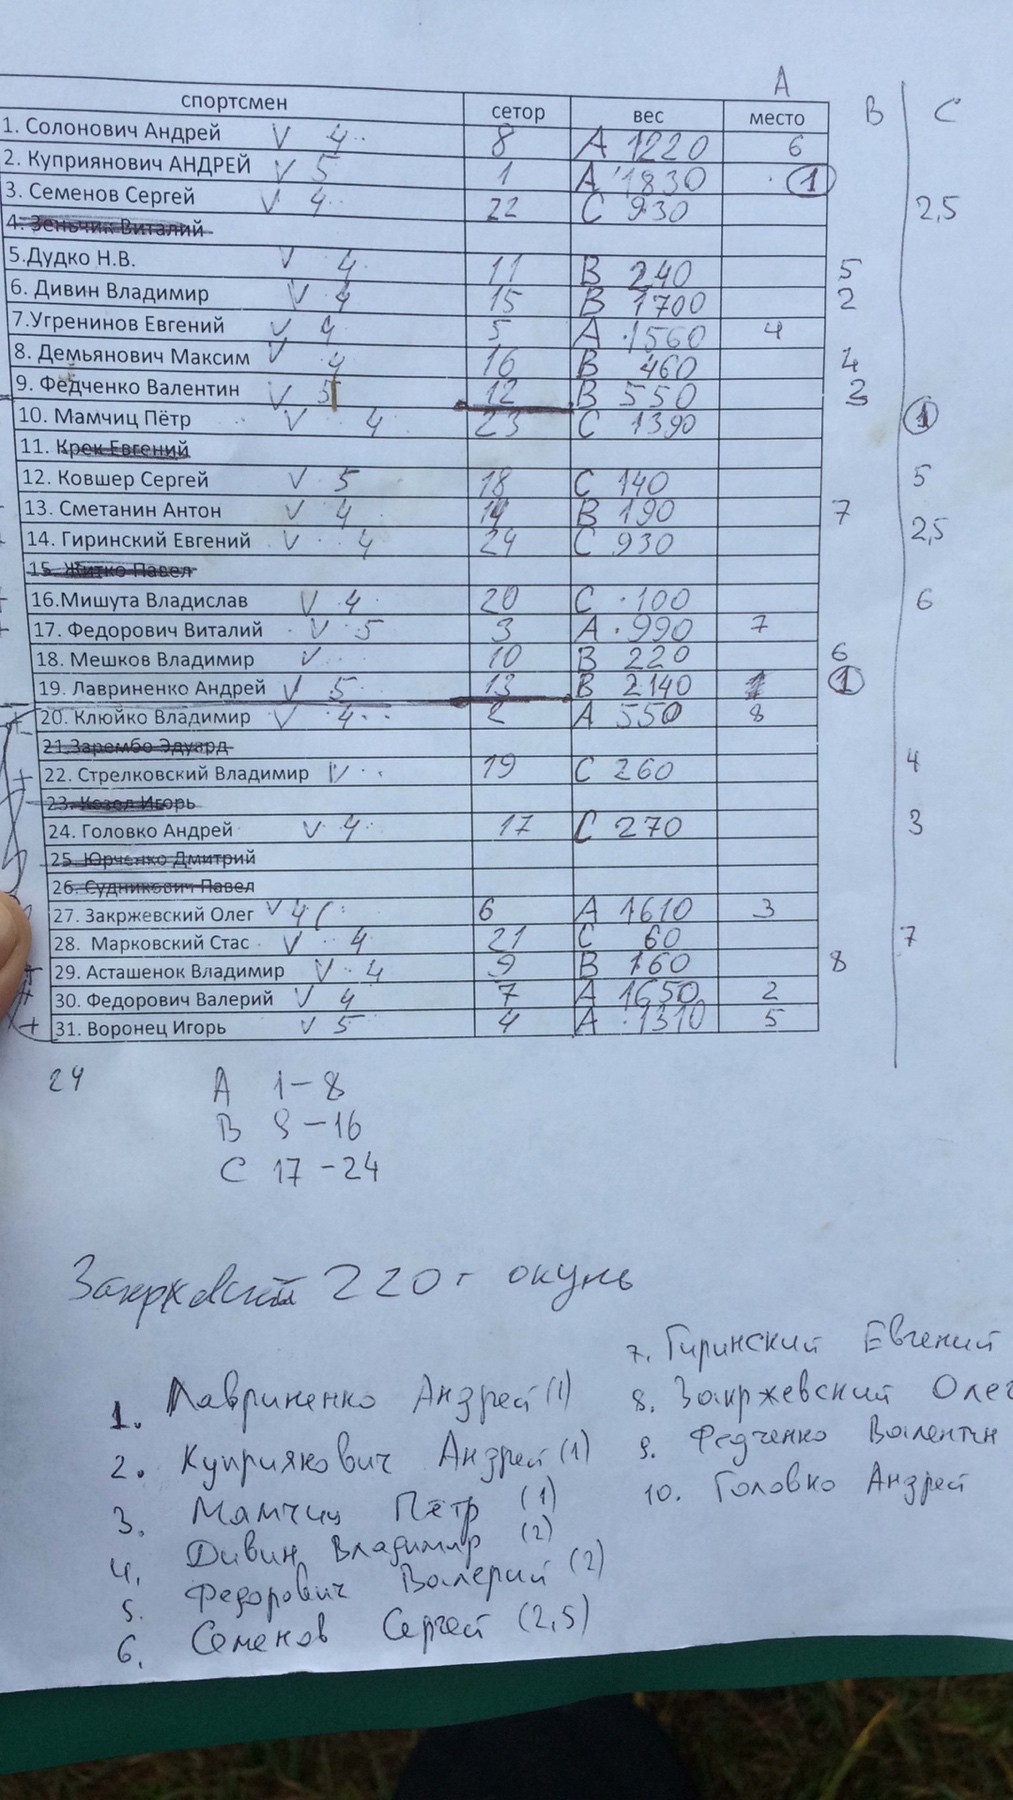 A
спортсмен сетор вес место B C
1. Солонович Андрей V 4 8 A 1220 6
2. Куприянович АНДРЕЙ V 5 1 A 1830 1
3. Семенов Сергей V 4 22 C 930 2,5
4. Зеньчик Виталий
5.Дудко Н.В. V 4 11 B 240 5
6. Дивин Владимир V 4 15 B 1700 2
7.Угренинов Евгений V 4 5 A 1560 4
8. Демьянович Максим V 4 16 B 460 4
9. Федченко Валентин V 5 12 B 550 3
10. Мамчиц Пётр V 4 23 C 1390 1
11. Крек Евгений
12. Ковшер Сергей V 5 18 C 140 5
13. Сметанин Антон V 4 14 B 190 7
14. Гиринский Евгений V 4 24 C 930 2,5
15. Житко Павел
16.Мишута Владислав V 4 20 C 100 6
17. Федорович Виталий V 5 3 A 990 7
18. Мешков Владимир V 10 B 220 6
19. Лавриненко Андрей V 5 13 B 2140 1
20. Клюйко Владимир V 4 2 A 550 8
21.Зарембо Эдуард
22. Стрелковский Владимир V 19 C 260 4
23. Козел Игорь
24. Головко Андрей V 4 17 C 270 3
25. Юрченко Дмитрий
26. Судникович Павел
27. Закржевский Олег V 4 6 A 1610 3
28. Марковский Стас V 4 21 C 60 7
29. Асташенок Владимир V 4 9 B 160 8
30. Федорович Валерий V 4 7 A 1650 2
31. Воронец Игорь V 5 4 A 1310 5
24 A 1-8
B 9-16
C 17-24
220 г окунь
1. Лавриненко Андрей (1)
2. Куприякович Андрей (1)
3. Мамчиц Пётр (1)
4. Дивин Владимир (2)
5. Федорович Валерий (2)
6. Семенов Сергей (2,5)
7. Гиринский Евгений
8. Закржевский Олег
9. Федченко Валентин
10. Головко Андрей